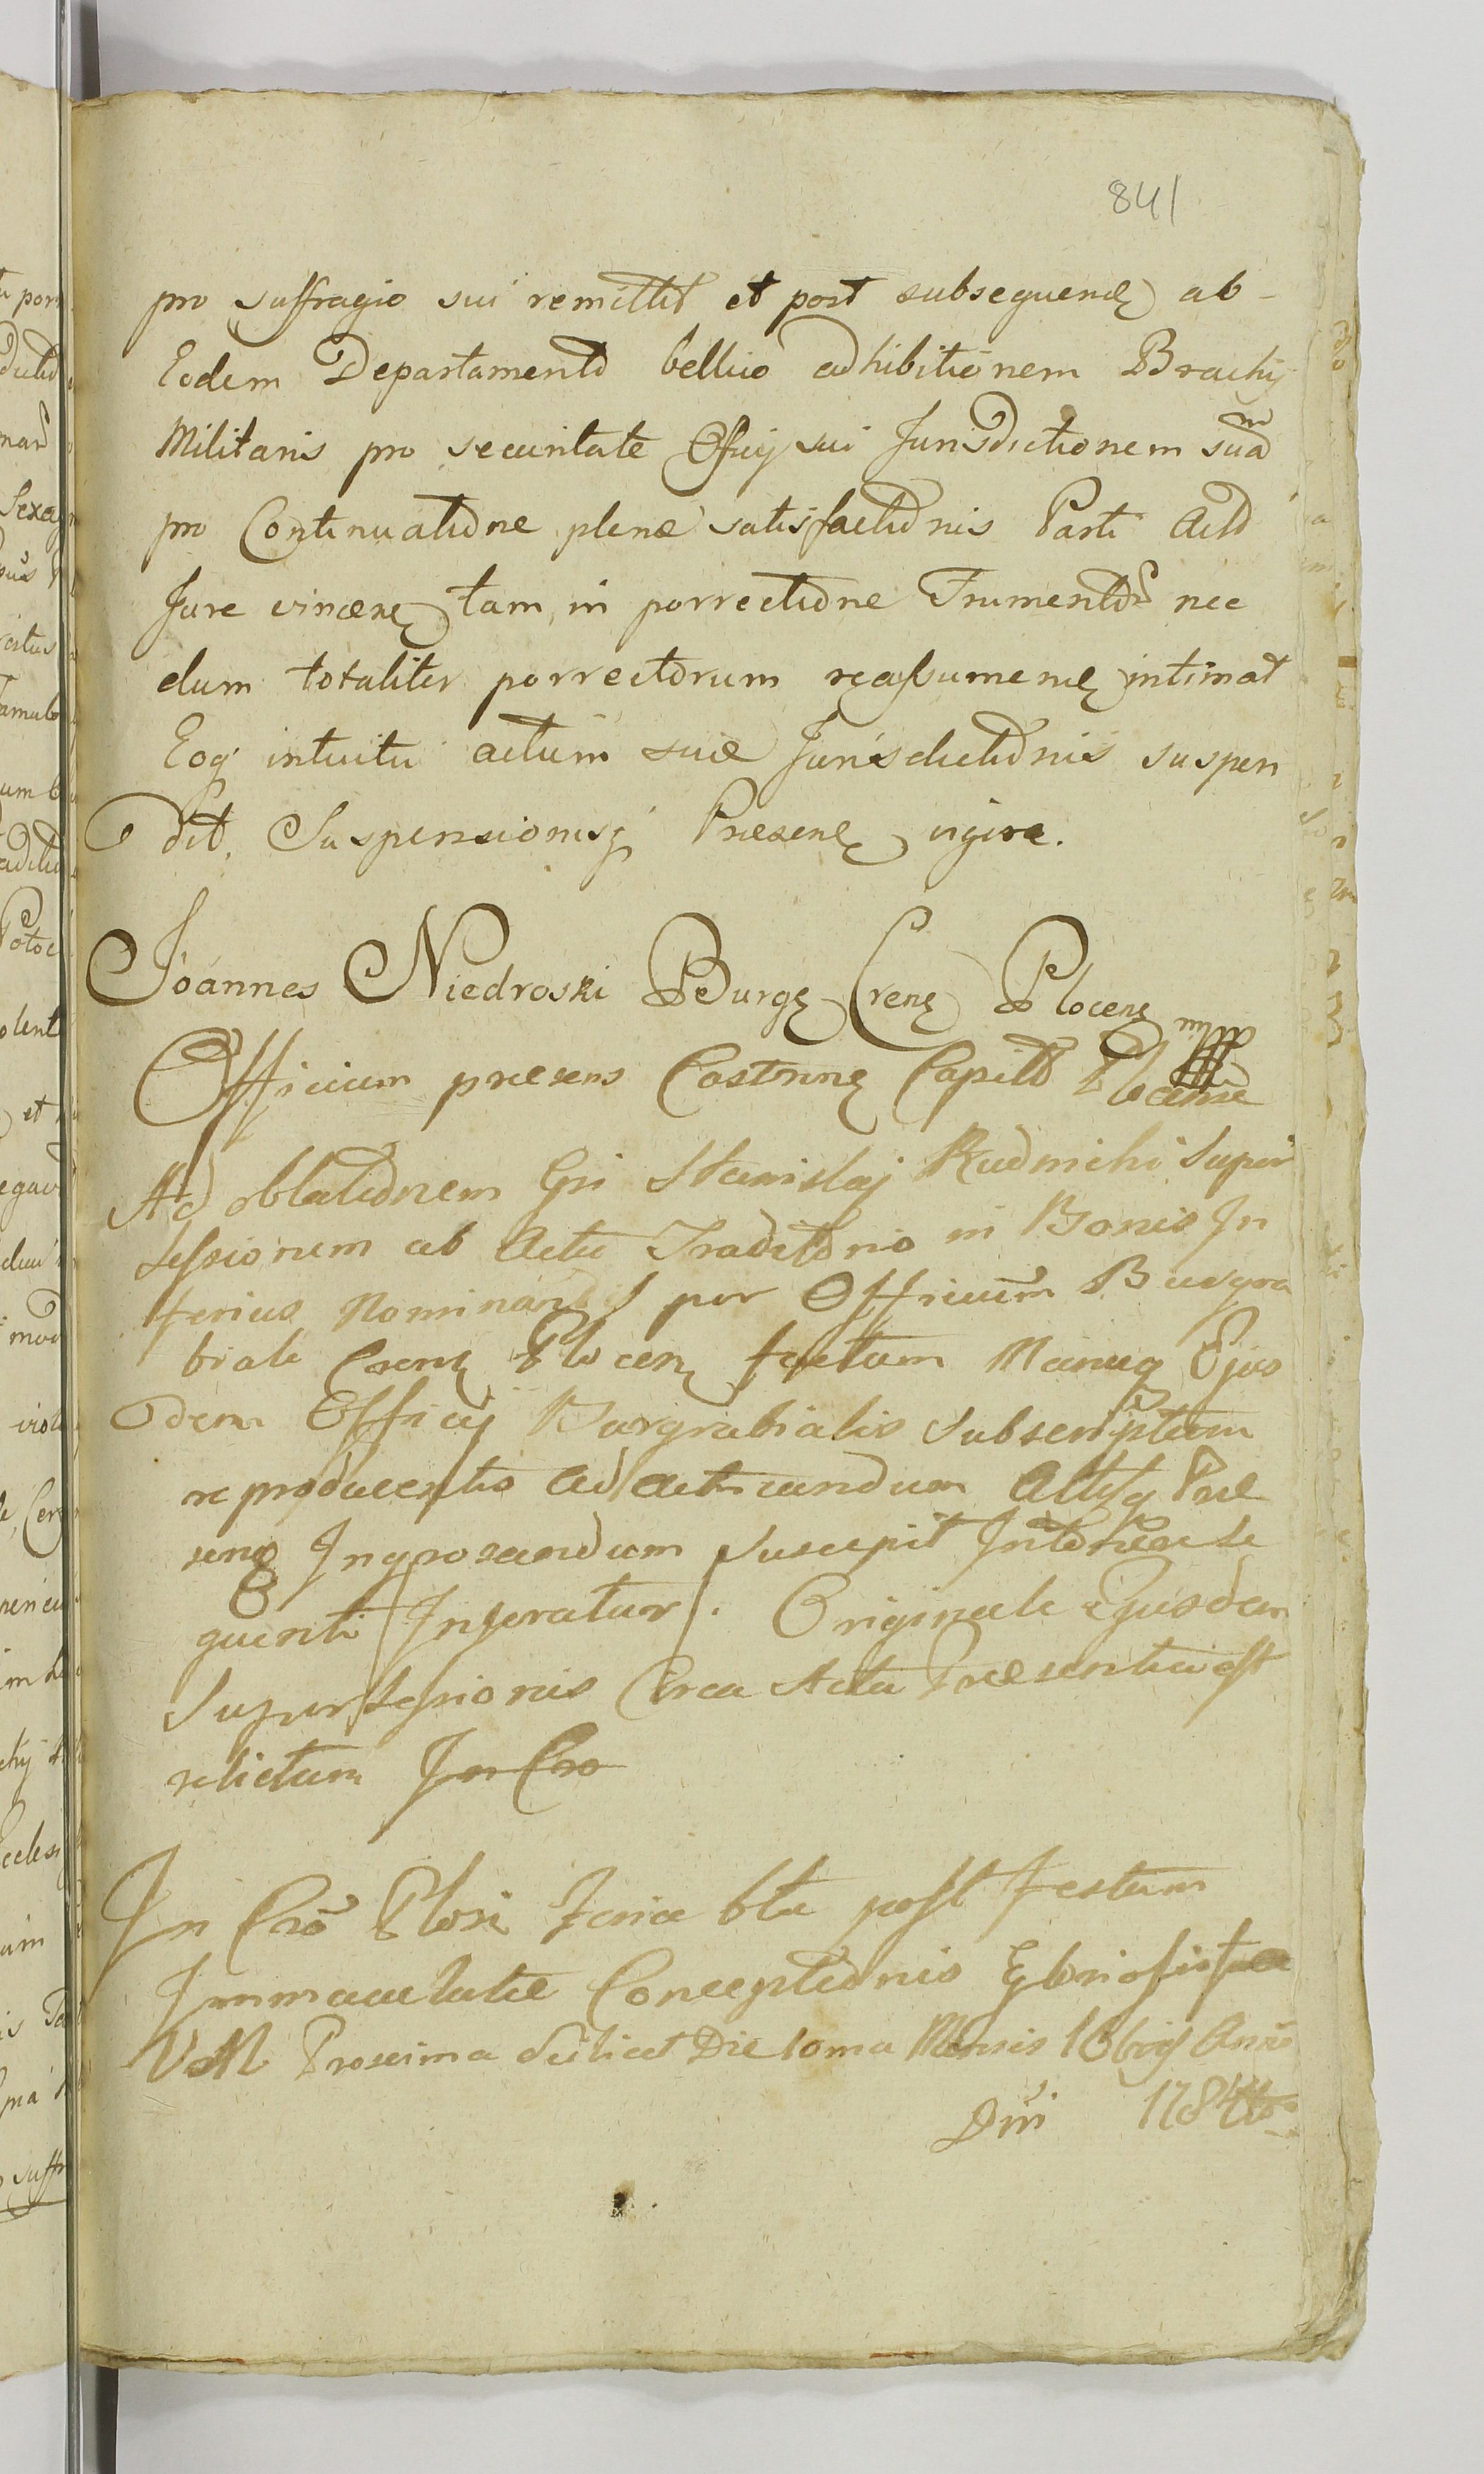 841
pro suffragio sui remittit et post subsequenę ab-
Eodem Departamento bellico adhibitionem Brachij
Militaris pro securitate Officij sui Jurisdictionem suam
pro Continuatione plenæ satisfactionis Parti Acto
Jure vincenę tam in porrectione Frumentor nec
dum totaliter porrectorum reassumenę intimat
Eoq intuitu actum suæ Jurisdictionis suspen
dit, Suspensionisq Præsenę vigore.
Joannes Niedroski Burgę Crenę Plocenę mpp
Officium præsens Castrenę Capitł Plocense
Ad oblationem Gsi Stanislaj Rudnicki Super
sessionem ab Actu Traditorio in Bonis In
ferius Nominań per Officium Burgra
biale Crenę Plocenę factum Manuq Ejus
dem Officij Burgrabialis subscriptum
reproducentis ad acticandum Actisq Præ
senę Ingrosandum suscepit Intonea se
quenti Inseratur. Originale Ejusdem
Supersessionis Circa Acta Præsentia est
relictum In Cro
In Crō Płoci Feria 6ta post Festum
Immaculatæ Conceptionis Gloriosissimæ
VM Proxima scilicet Die 10ma Mensis 10bris Anno
Dni 1784to